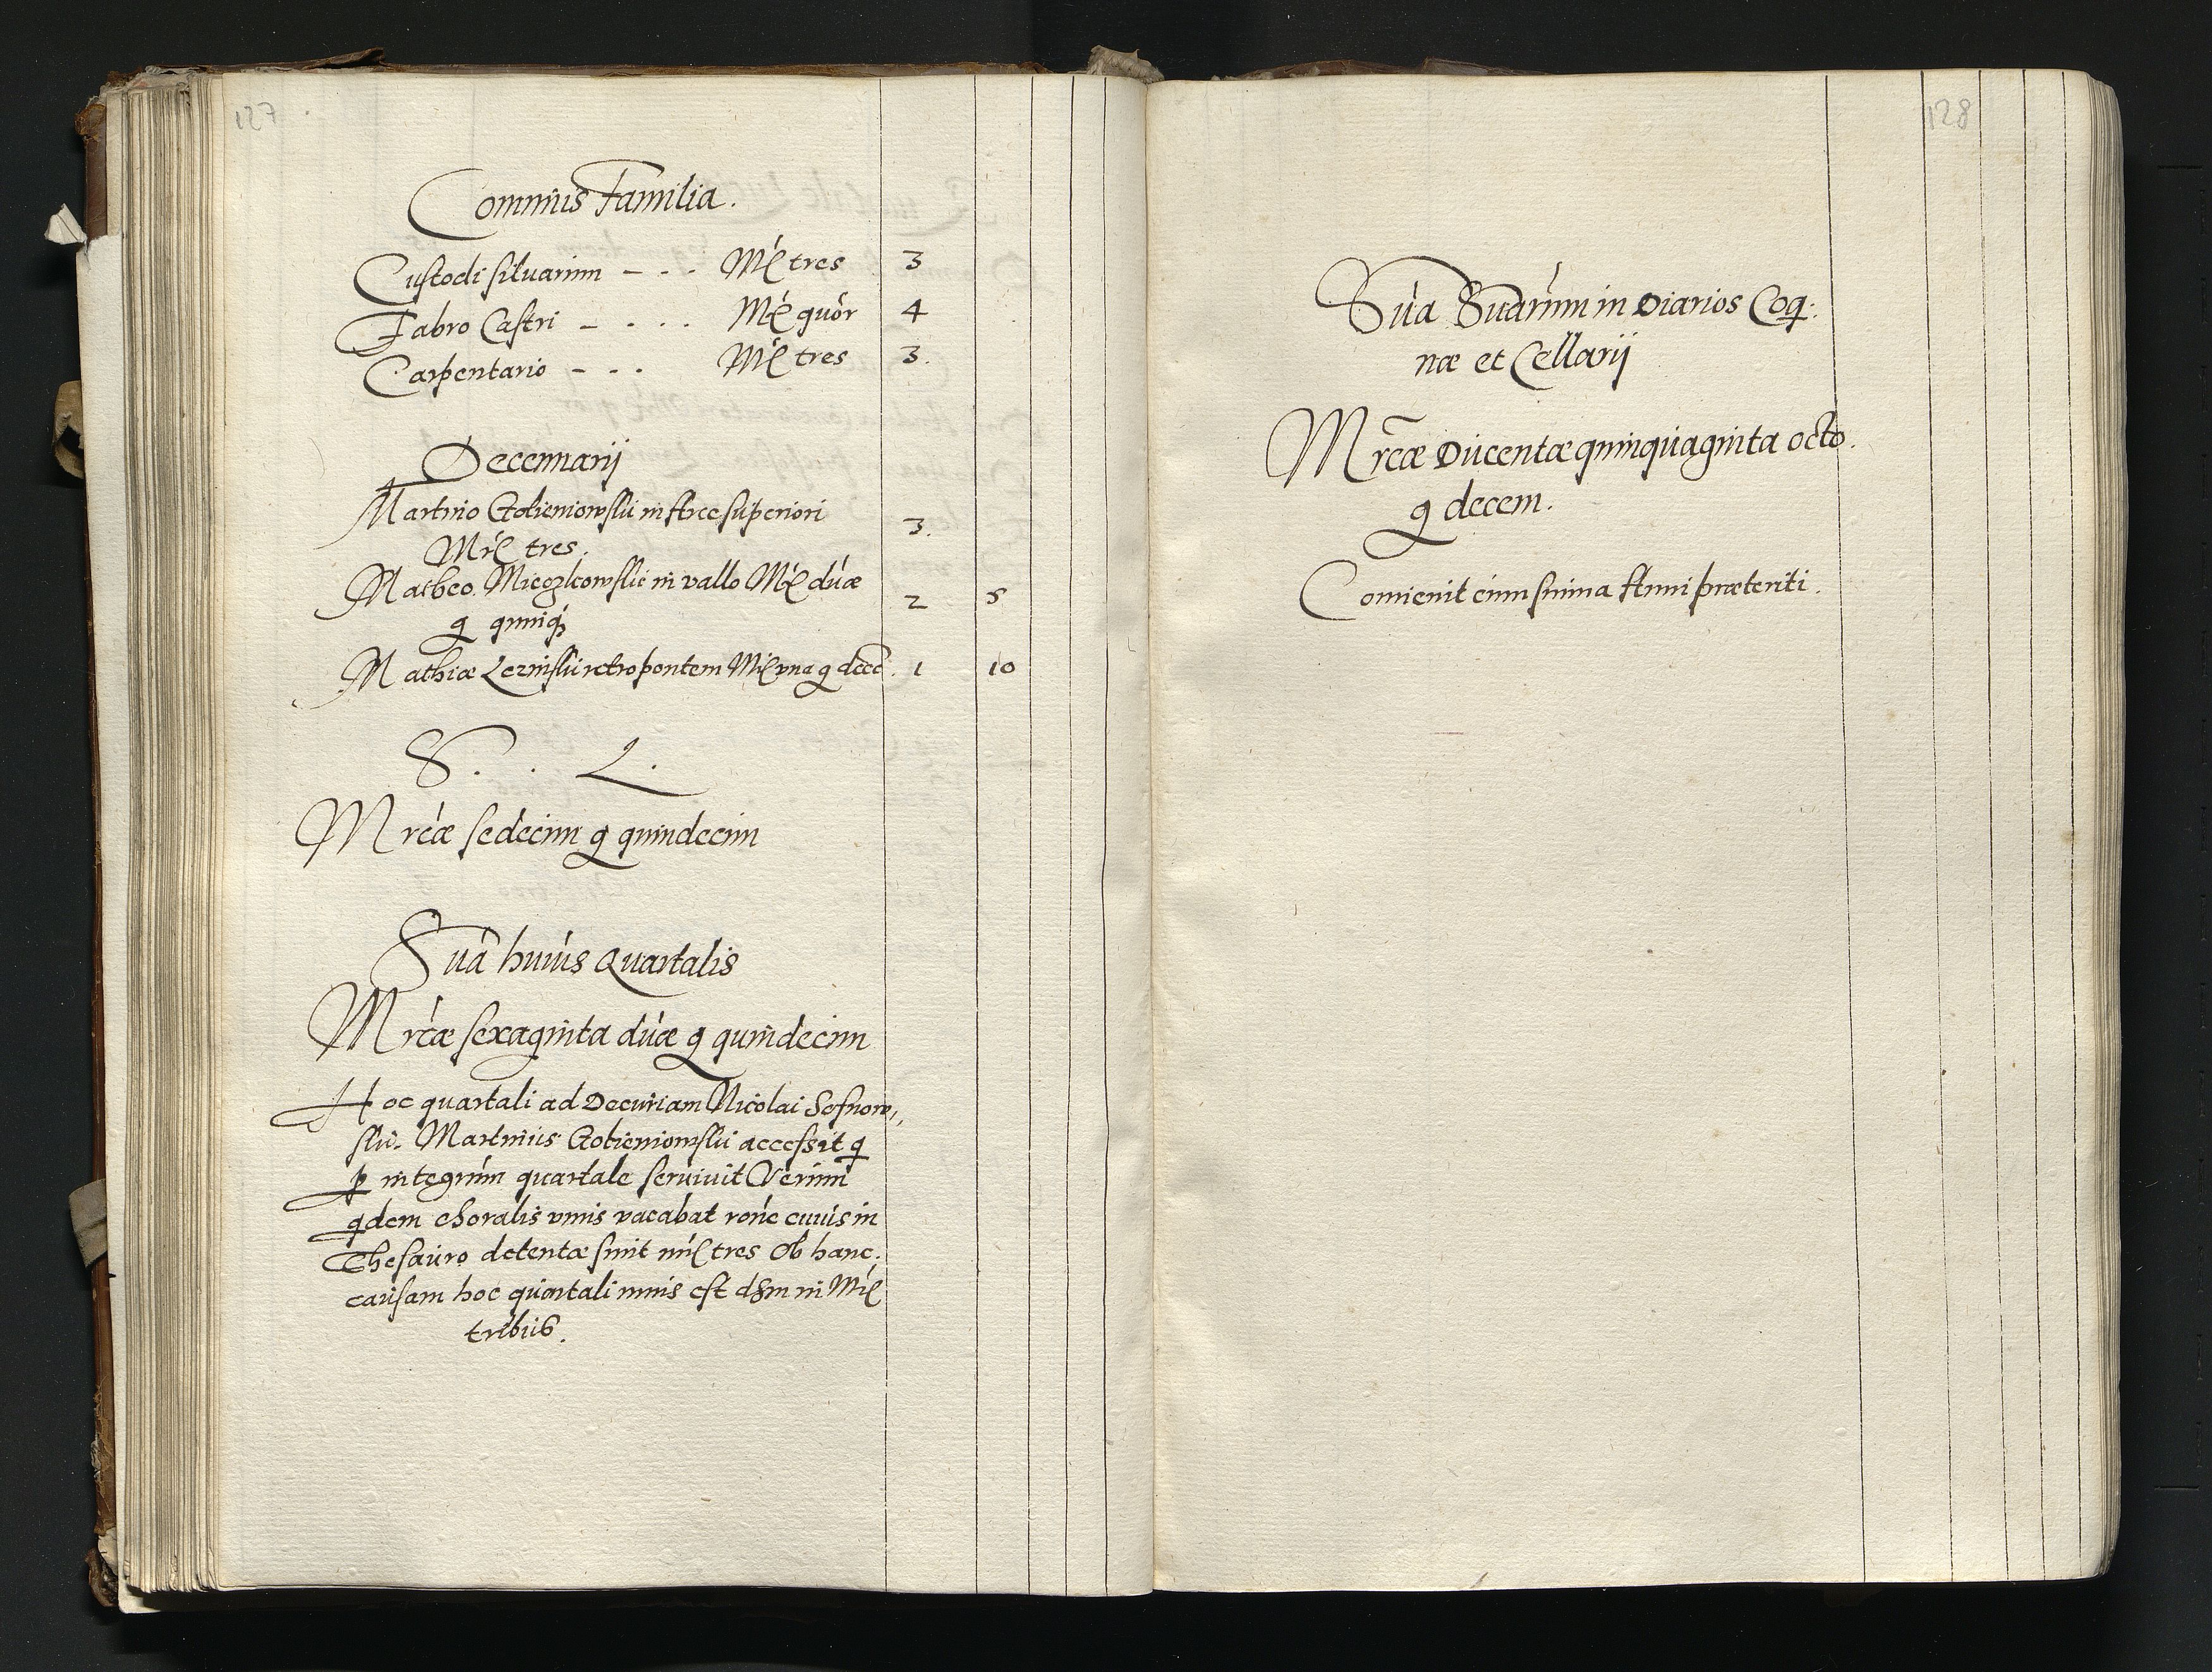 127
Com̃nis Familia.
Custodi siluarum - . . Mr̃ tres 3
Fabro Castri - . . . Mr̃ quõr 4
Carpentario - . . Mr̃ tres 3.
Decennarij
Martino Golieniowski in Arce superiori
Mr̃ tres. 3.
Matheo Mieczkowski in vallo Mr̃ duæ 2 5
g quinq3
Mathiæ Lezinski retro pontem Mr̃ vna g decẽ. 1 10
S. . L.
Mrcæ sedecim g quindecim
Sũa huius Quartalis
Mrcæ sexaginta duæ g quindecim
Hoc quartali ad Decuriam Nicolai Sesnow,,
ski. Martinus Golieniowski accessit q
p integrum quartale seruiuit Verum
qdem choralis vnus vacabat rone cuius in
Thesauro detentæ sunt mr̃ tres Ob hanc
causam hoc quartali minus est dsm in Mr̃
tribus.
128
Sũa Suarum in Diarios Coq:
næ et Cellarij
Mrcæ Ducentæ quinquaginta octo.
g decem.
Conuenit cum summa Anni præteriti.